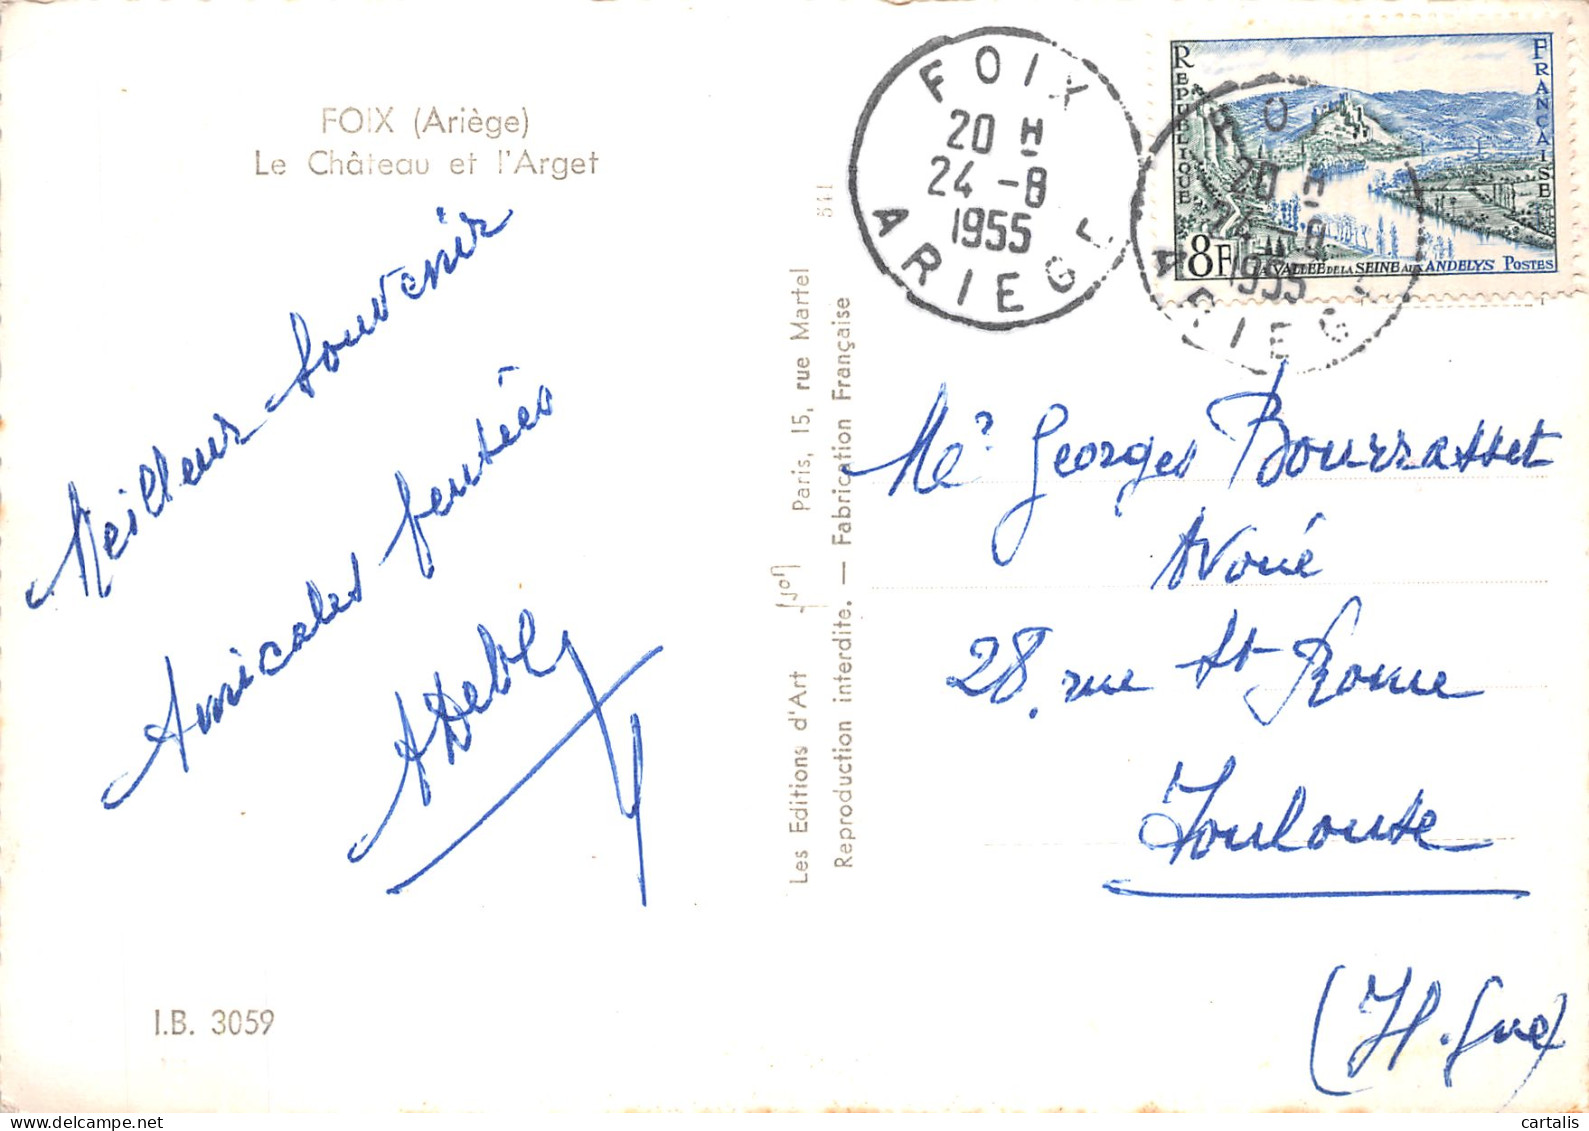 FOIX (Ariège)
Le Château et l'Arget
Meilleur souvenir
Amicales pensées
I.B. 3059
Les Editions d'Art Yvon Paris, 15, rue Martel
Reproduction interdite. — Fabrication Française
FOIX
20 H
24 -8
1955
ARIEGE
REPUBLIQUE FRANÇAISE
8F LA VALLÉE DE LA SEINE AUX ANDELYS POSTES
FOIX
20 H
24 -8
1955
ARIEGE
Me Georges Bourrasset
Avoué
28, rue St Rome
Toulouse
(H. Gne)
cartalis